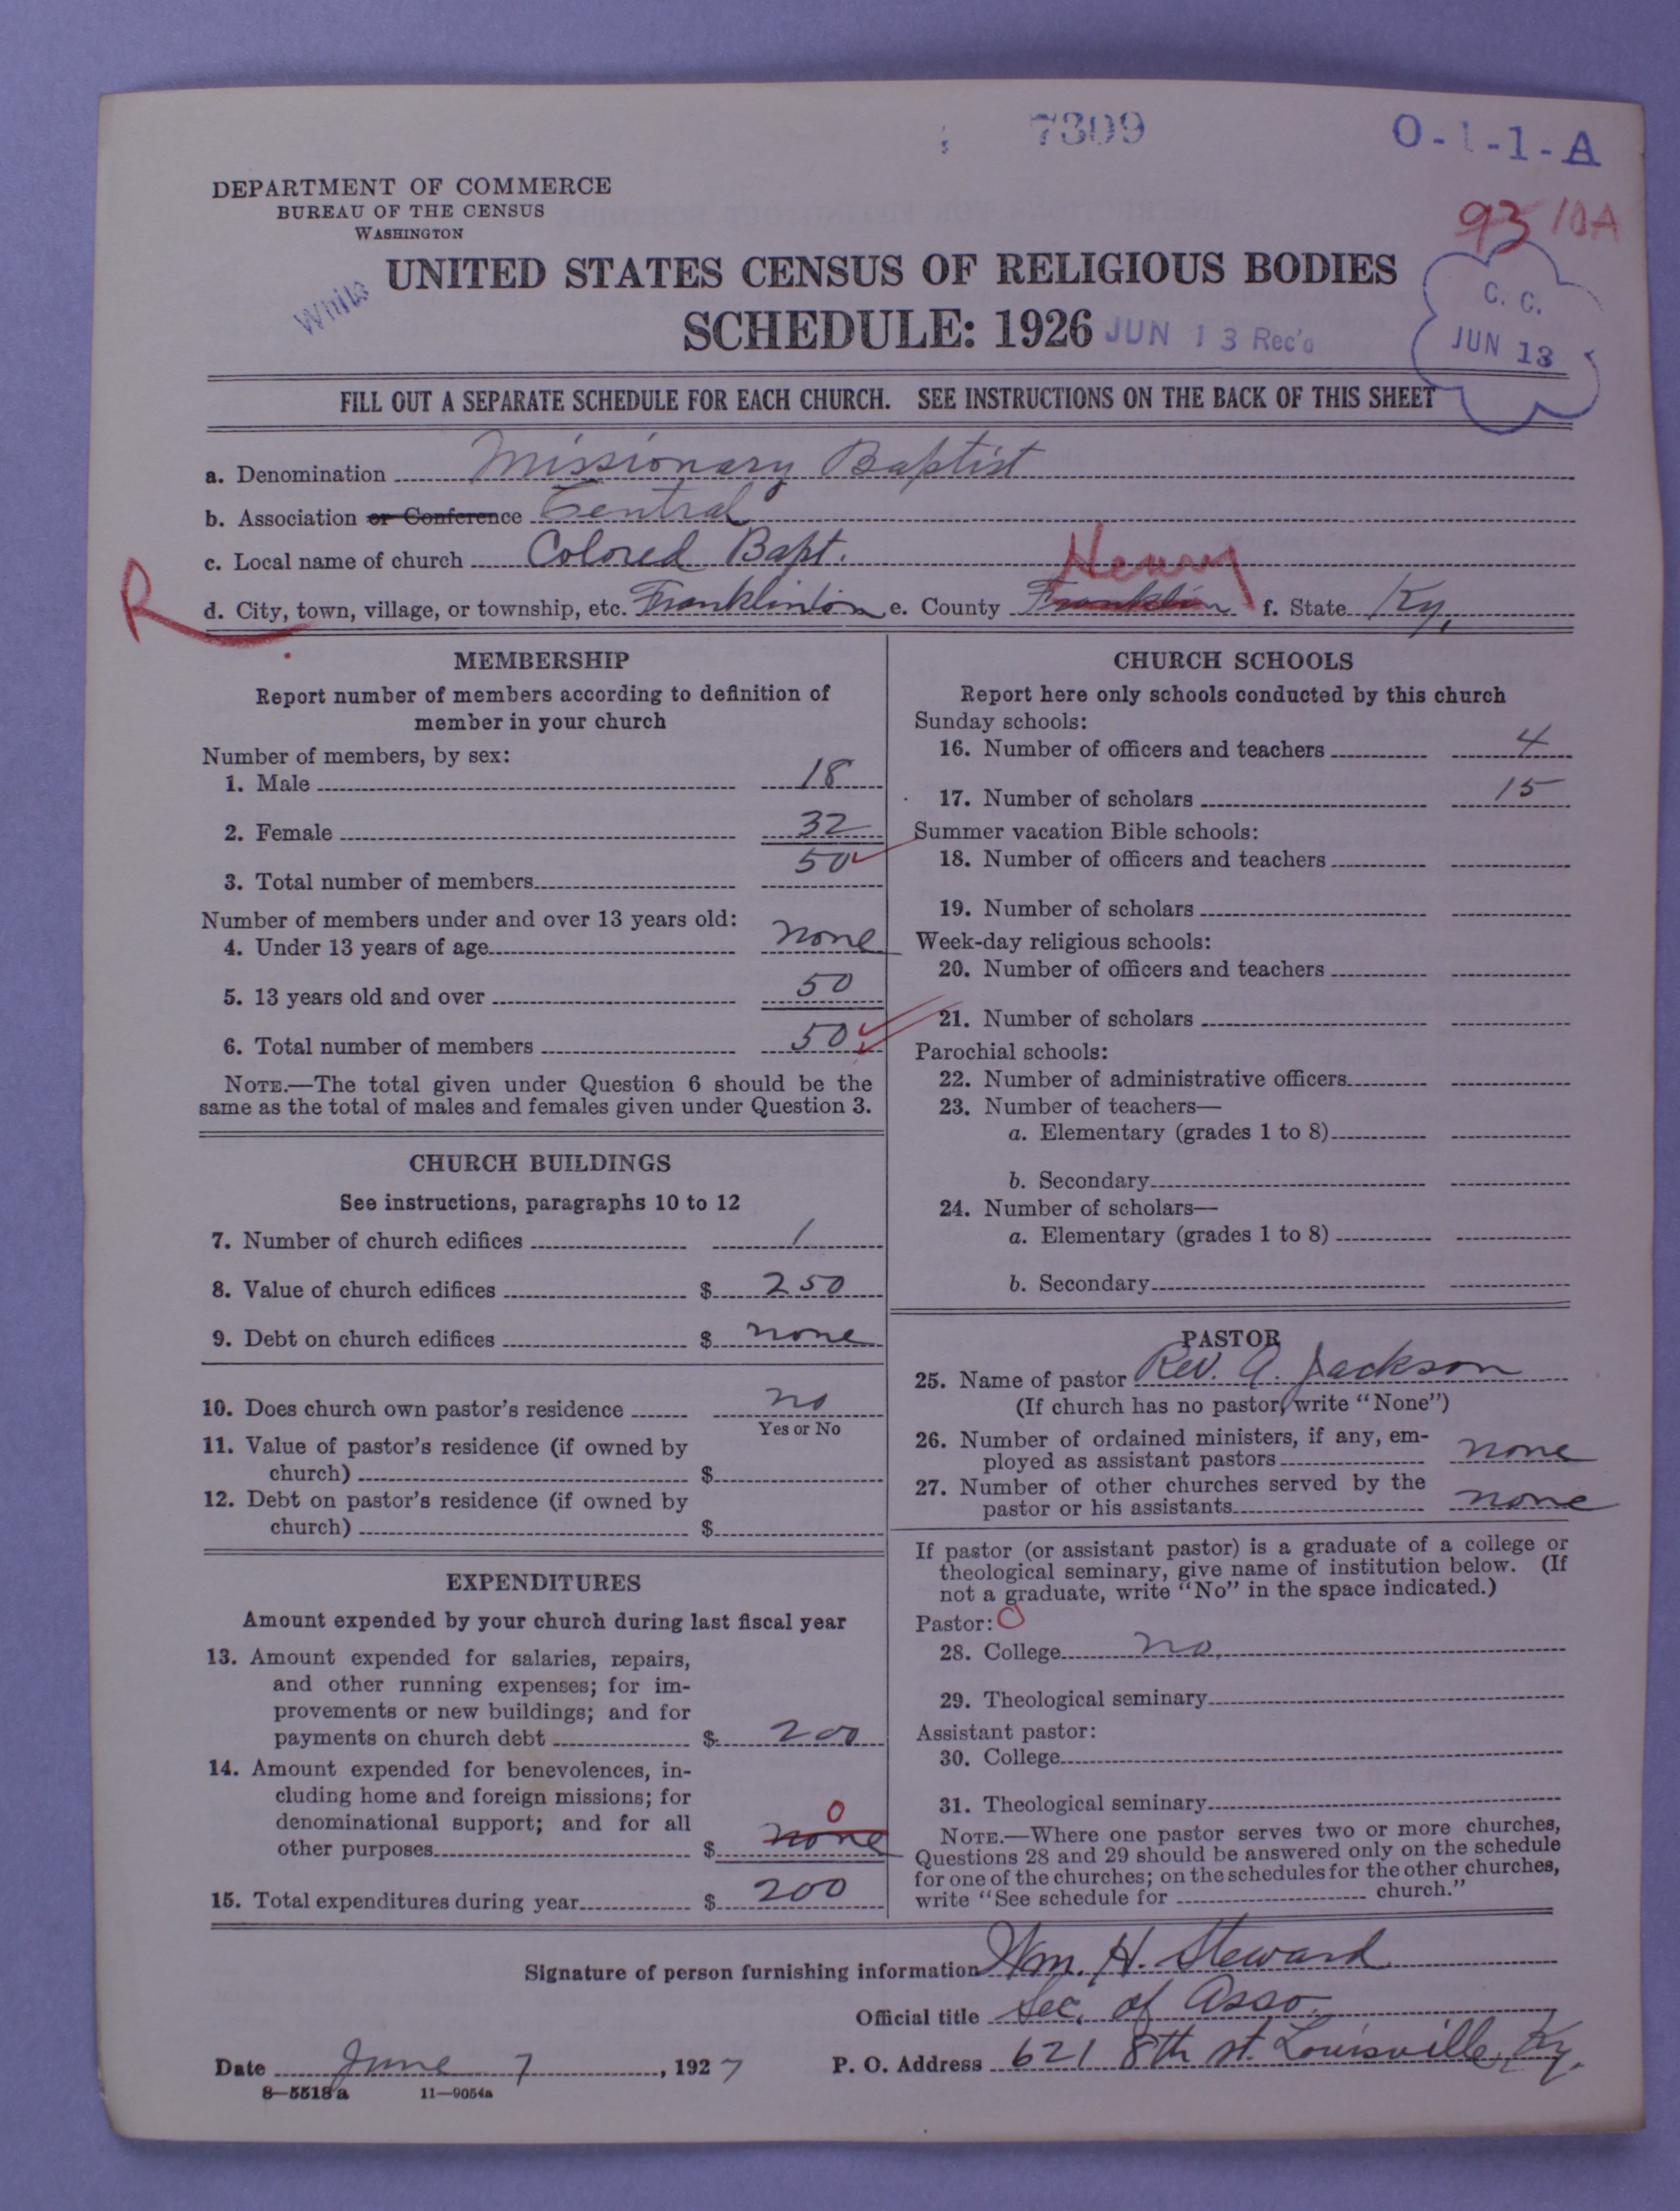 7309
O-1-1-A
DEPARTMENT OF COMMERCE
BUREAU OF THE CENSUS
WASHINGTON
93 10A
White
UNITED STATES CENSUS OF RELIGIOUS BODIES
SCHEDULE: 1926
JUN 13 Rec'd
C. C.
JUN 13
FILL OUT A SEPARATE SCHEDULE FOR EACH CHURCH. SEE INSTRUCTIONS ON THE BACK OF THIS SHEET
a. Denomination Missionary Baptist
b. Association or Conference Central
c. Local name of church Colored Bapt.
Henry
R
d. City, town, village, or township, etc. Franklinton e. County Franklin f. State Ky.
MEMBERSHIP
Report number of members according to definition of
member in your church
Number of members, by sex:
1. Male 18
2. Female 32
3. Total number of members 50
Number of members under and over 13 years old:
4. Under 13 years of age none
5. 13 years old and over 50
6. Total number of members 50
NOTE.—The total given under Question 6 should be the
same as the total of males and females given under Question 3.
CHURCH BUILDINGS
See instructions, paragraphs 10 to 12
7. Number of church edifices 1
8. Value of church edifices $ 250
9. Debt on church edifices $ none
10. Does church own pastor's residence no
Yes or No
11. Value of pastor's residence (if owned by
church) $
12. Debt on pastor's residence (if owned by
church) $
EXPENDITURES
Amount expended by your church during last fiscal year
13. Amount expended for salaries, repairs,
and other running expenses; for im-
provements or new buildings; and for
payments on church debt $ 200
14. Amount expended for benevolences, in-
cluding home and foreign missions; for
denominational support; and for all
0
other purposes $ none
15. Total expenditures during year $ 200
CHURCH SCHOOLS
Report here only schools conducted by this church
Sunday schools:
16. Number of officers and teachers 4
17. Number of scholars 15
Summer vacation Bible schools:
18. Number of officers and teachers
19. Number of scholars
Week-day religious schools:
20. Number of officers and teachers
21. Number of scholars
Parochial schools:
22. Number of administrative officers
23. Number of teachers—
a. Elementary (grades 1 to 8)
b. Secondary
24. Number of scholars—
a. Elementary (grades 1 to 8)
b. Secondary
PASTOR
25. Name of pastor Rev. A. Jackson
(If church has no pastor, write "None")
26. Number of ordained ministers, if any, em-
ployed as assistant pastors none
27. Number of other churches served by the
pastor or his assistants none
If pastor (or assistant pastor) is a graduate of a college or
theological seminary, give name of institution below. (If
not a graduate, write "No" in the space indicated.)
Pastor: O
28. College no.
29. Theological seminary
Assistant pastor:
30. College
31. Theological seminary
NOTE.—Where one pastor serves two or more churches,
Questions 28 and 29 should be answered only on the schedule
for one of the churches; on the schedules for the other churches,
write "See schedule for church."
Signature of person furnishing information Wm. H. Steward
Official title Sec. of Asso.
Date June 7, 1927 P. O. Address 621 8th st. Louisville, Ky.
8—5518a 11—9054a